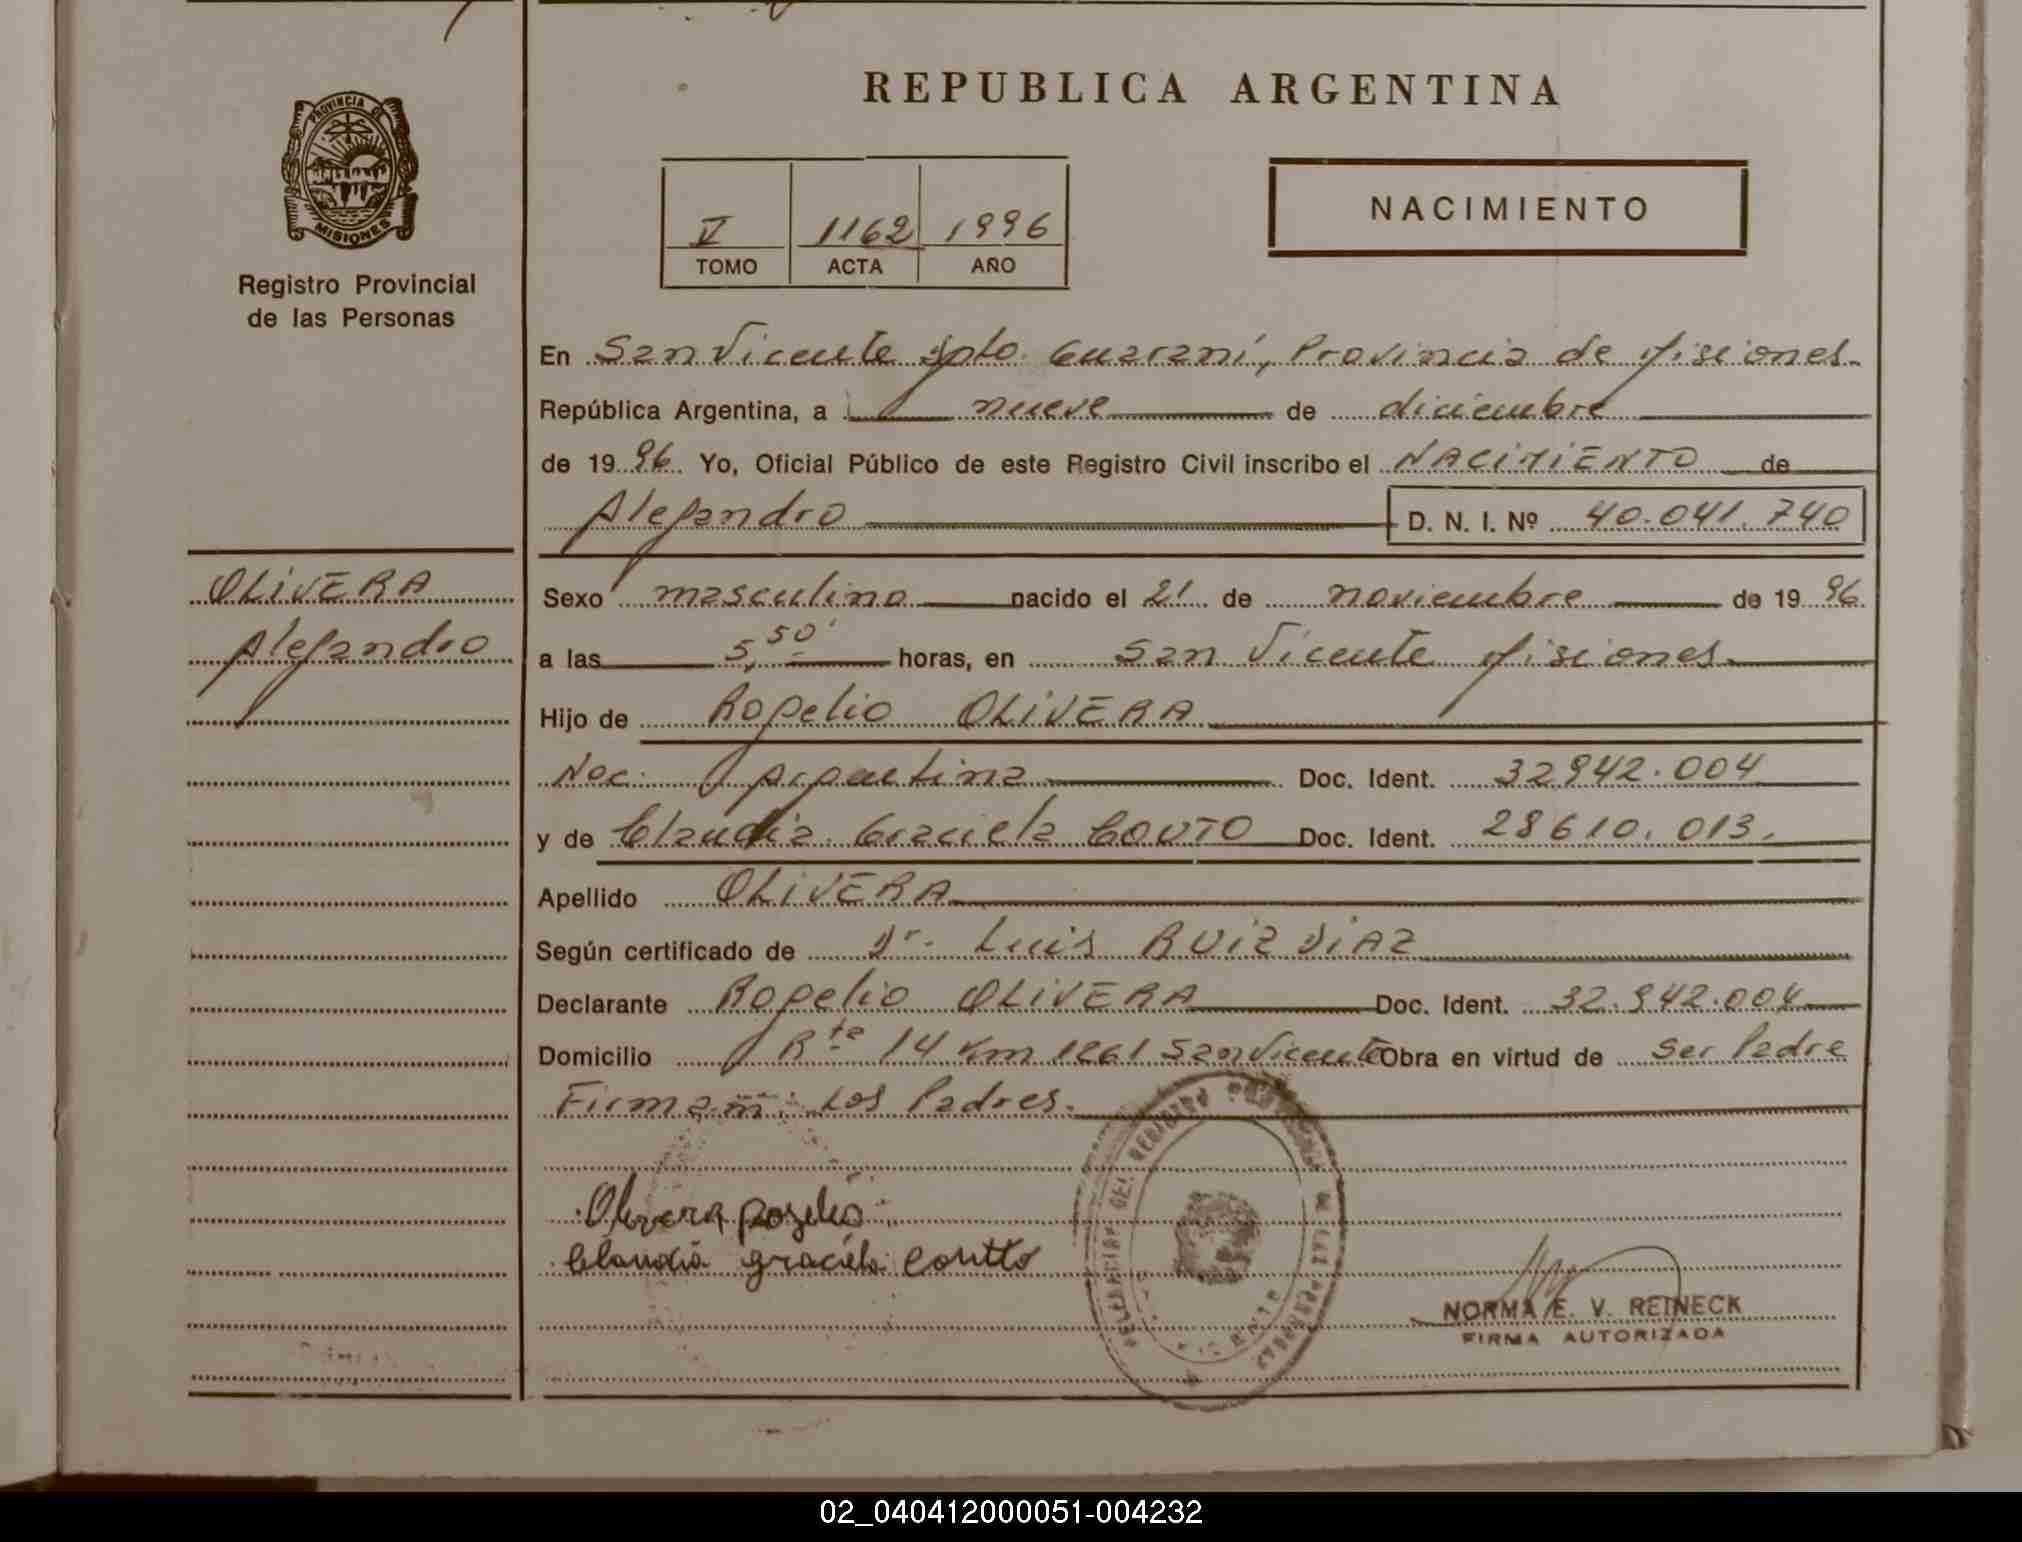 REPUBLICA ARGENTINA
PROVINCIA DE
MISIONES
Registro Provincial
de las Personas
V 1162 1996
TOMO ACTA AÑO
NACIMIENTO
En San Vicente Dpto. Guaraní, Provincia de Misiones
República Argentina, a nueve de diciembre
de 1996 Yo, Oficial Público de este Registro Civil inscribo el NACIMIENTO de
Alejandro D. N. I. Nº 40.041.740
OLIVERA
Alejandro
Sexo masculino nacido el 21 de noviembre de 1996
a las 5,50' horas, en San Vicente Misiones
Hijo de Rogelio OLIVERA
Nac. Argentina Doc. Ident. 32942.004
y de Claudia Graciela COUTO Doc. Ident. 28610.013.
Apellido OLIVERA
Según certificado de Dr. Luis RUIZ DIAZ
Declarante Rogelio OLIVERA Doc. Ident. 32.942.004
Domicilio Rta 14 Km 1261 San Vicente Obra en virtud de ser Padre
Firman: Los Padres.
Olivera Rogelio
Claudia graciela Coutto
DEL REGISTRO PROVINCIAL DE LAS PERSONAS
NORMA E. V. REINECK
FIRMA AUTORIZADA
02_040412000051-004232